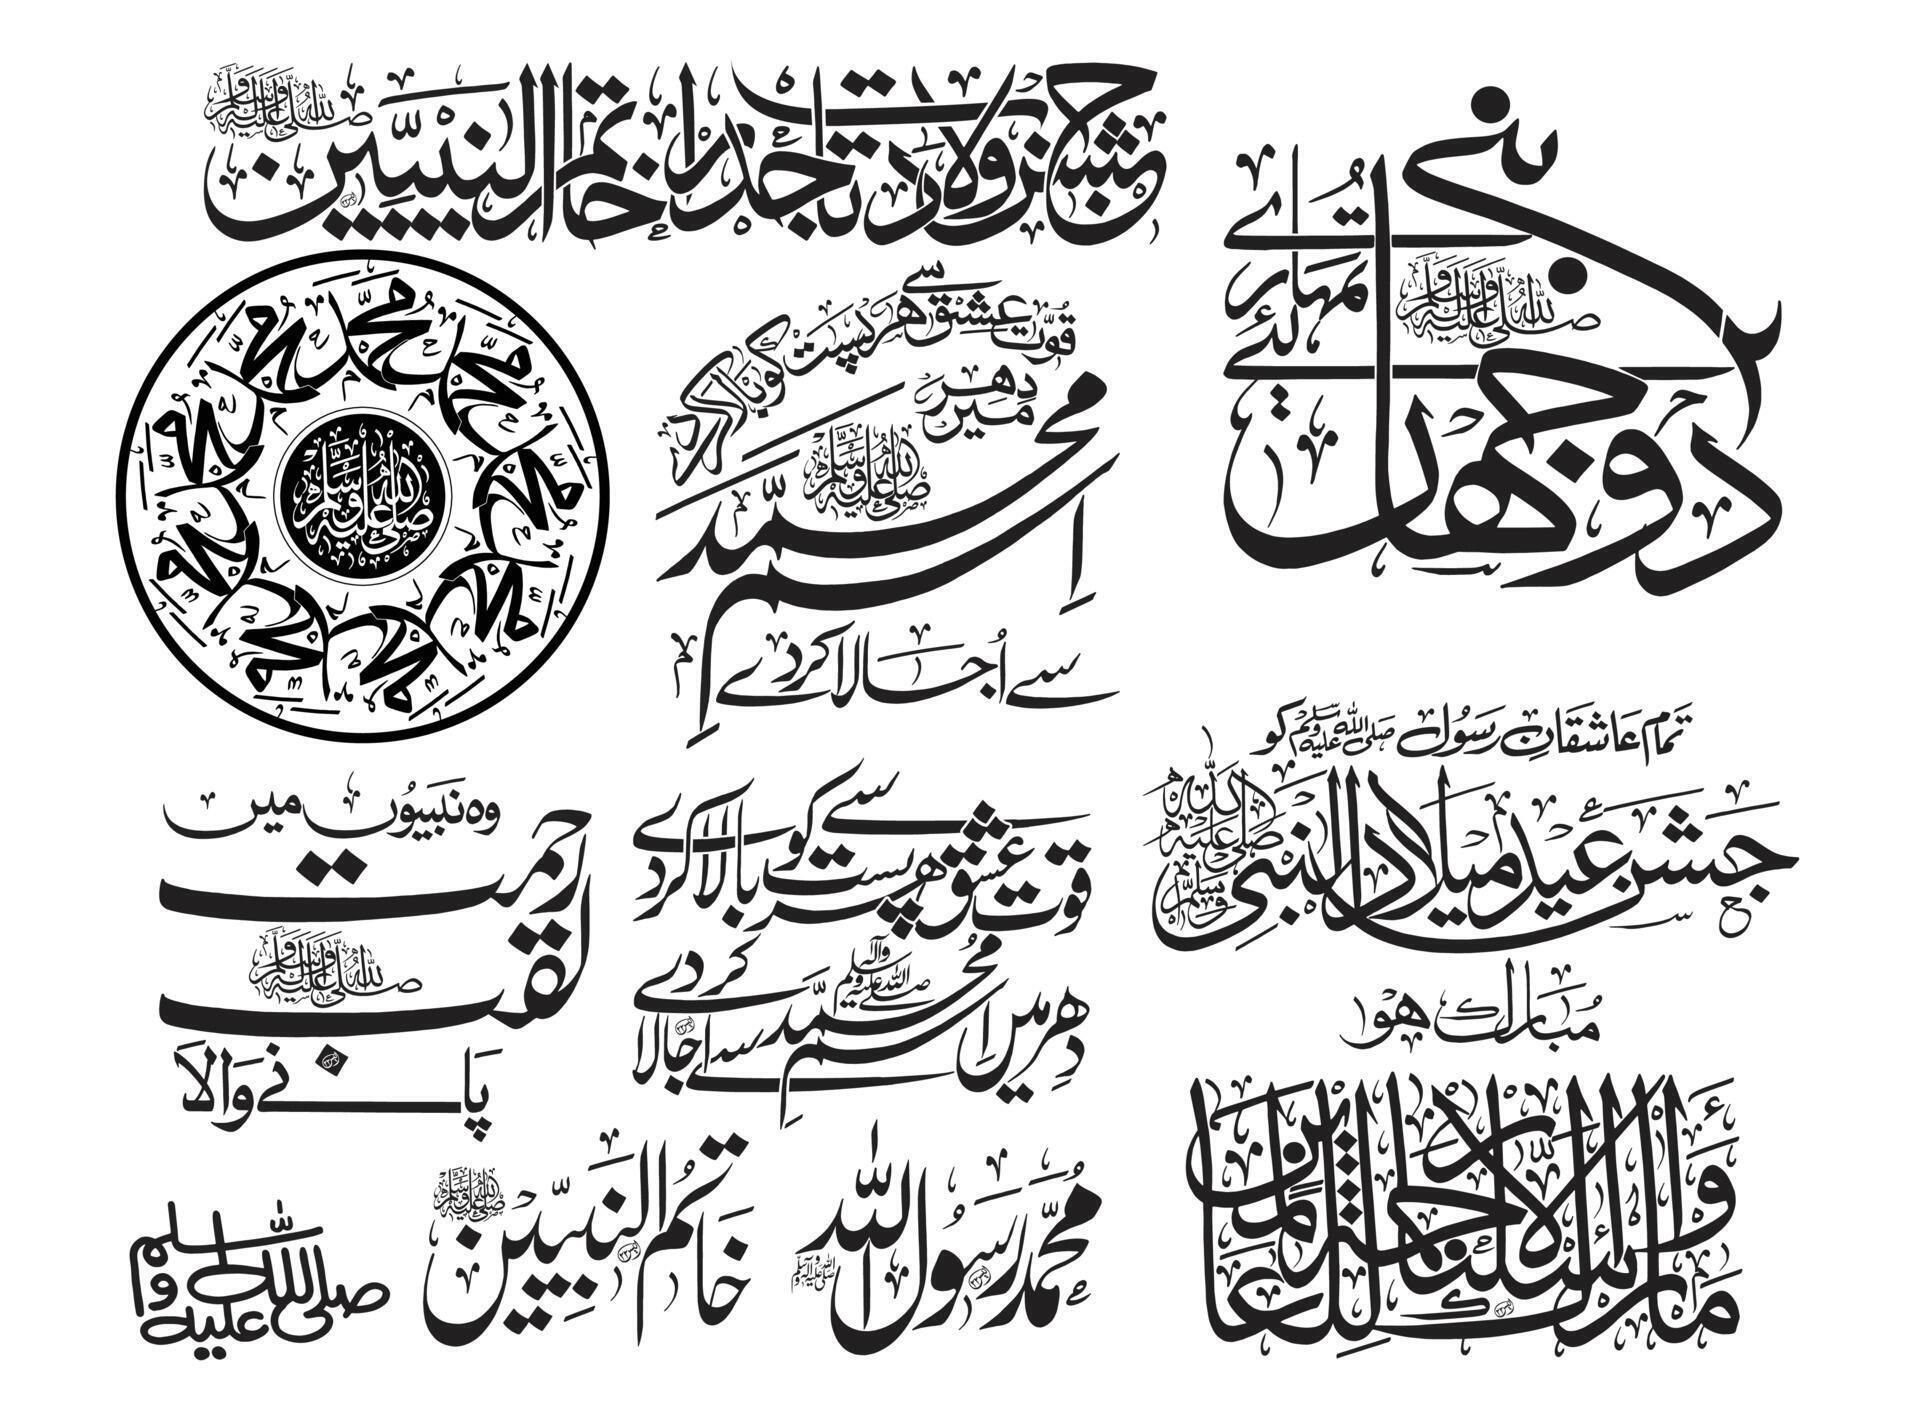 جشن ولادت تاجدار ختم النبیین صلی اللہ علیہ وسلم
بنے دو جہاں تمہارے لئے صلی اللہ علیہ وسلم
محمد محمد محمد محمد محمد محمد محمد محمد محمد محمد
صلی اللہ علیہ وسلم
قوتِ عشق سے ہر پست کو بالا کر دے
دہر میں
اسمِ محمد صلی اللہ علیہ وسلم
سے اُجالا کر دے
تمام عاشقانِ رسول صلی اللہ علیہ وسلم کو
جشن عید میلاد النبی صلی اللہ علیہ وسلم
مبارک ہو
وہ نبیوں میں
رحمت
لقب صلی اللہ علیہ وسلم
پانے والا
قوت عشق سے ہر پست کو بالا کر دے
دہر میں اسمِ محمد صلی اللہ علیہ وآلہ وسلم سے اجالا کر دے
وَمَا أَرْسَلْنَاكَ إِلَّا رَحْمَةً لِلْعَالَمِينَ
محمد رسول اللہ صلی اللہ علیہ وآلہ وسلم
خاتم النبیین صلی اللہ علیہ وسلم
صلی اللہ علیہ وسلم